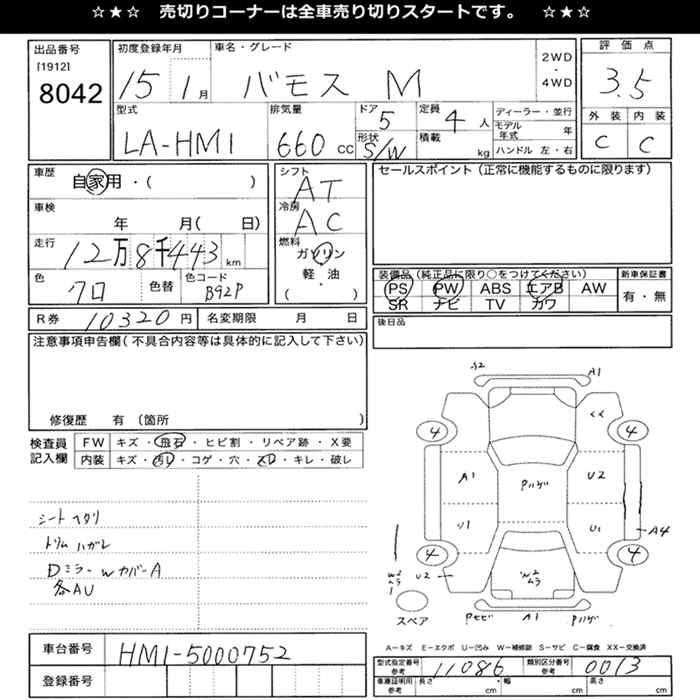 ☆★☆ 売切りコーナーは全車売り切りスタートです。 ☆★☆
出品番号
[1912]
8042
初度登録年月
15 1月
車名・グレード
バモス M
2WD
・
4WD
評価点
3.5
型式
LA-HM1
排気量
660 cc
ドア 5
形状 S/W
定員 4 人
積載 kg
ディーラー・並行
モデル年式 年
ハンドル 左・右
外装 内装
C C
車歴
自家用・( )
車検
年 月( 日)
走行
12万8千443 km
色
クロ
色替
色コード
B92P
シフト
AT
冷房
AC
燃料
ガソリン
・
軽・油
( )
セールスポイント (正常に機能するものに限ります)
装備品 (純正品に限り○をつけてください)
PS PW ABS エアB AW
SR ナビ TV カワ
新車保証書
有・無
R券 10320 円
名変期限 月 日
後日品
注意事項申告欄 (不具合内容等は具体的に記入して下さい)
修復歴 有 (箇所 )
検査員
記入欄
FW キズ・飛石・ヒビ割・リペア跡・X要
内装 キズ・汚レ・コゲ・穴・スレ・キレ・破レ
シート ヘタリ
トリム ハガレ
Dミラー Wカバー A
各AU
S2 A1
4 4
A1 Pハゲ U2
U1 U1
A4
4 4
W2
ムラ
U2
W2
ムラ
スペア
Pサビ A1 Pハゲ
A−キズ E−エクボ U−凹み W−補修跡 S−サビ C−腐食 XX−交換済
車台番号 HM1-5000752
登録番号
型式指定番号
参考
11086
類別区分番号
参考
0013
車庫証明用
参考
長さ cm
・幅 cm
高さ cm